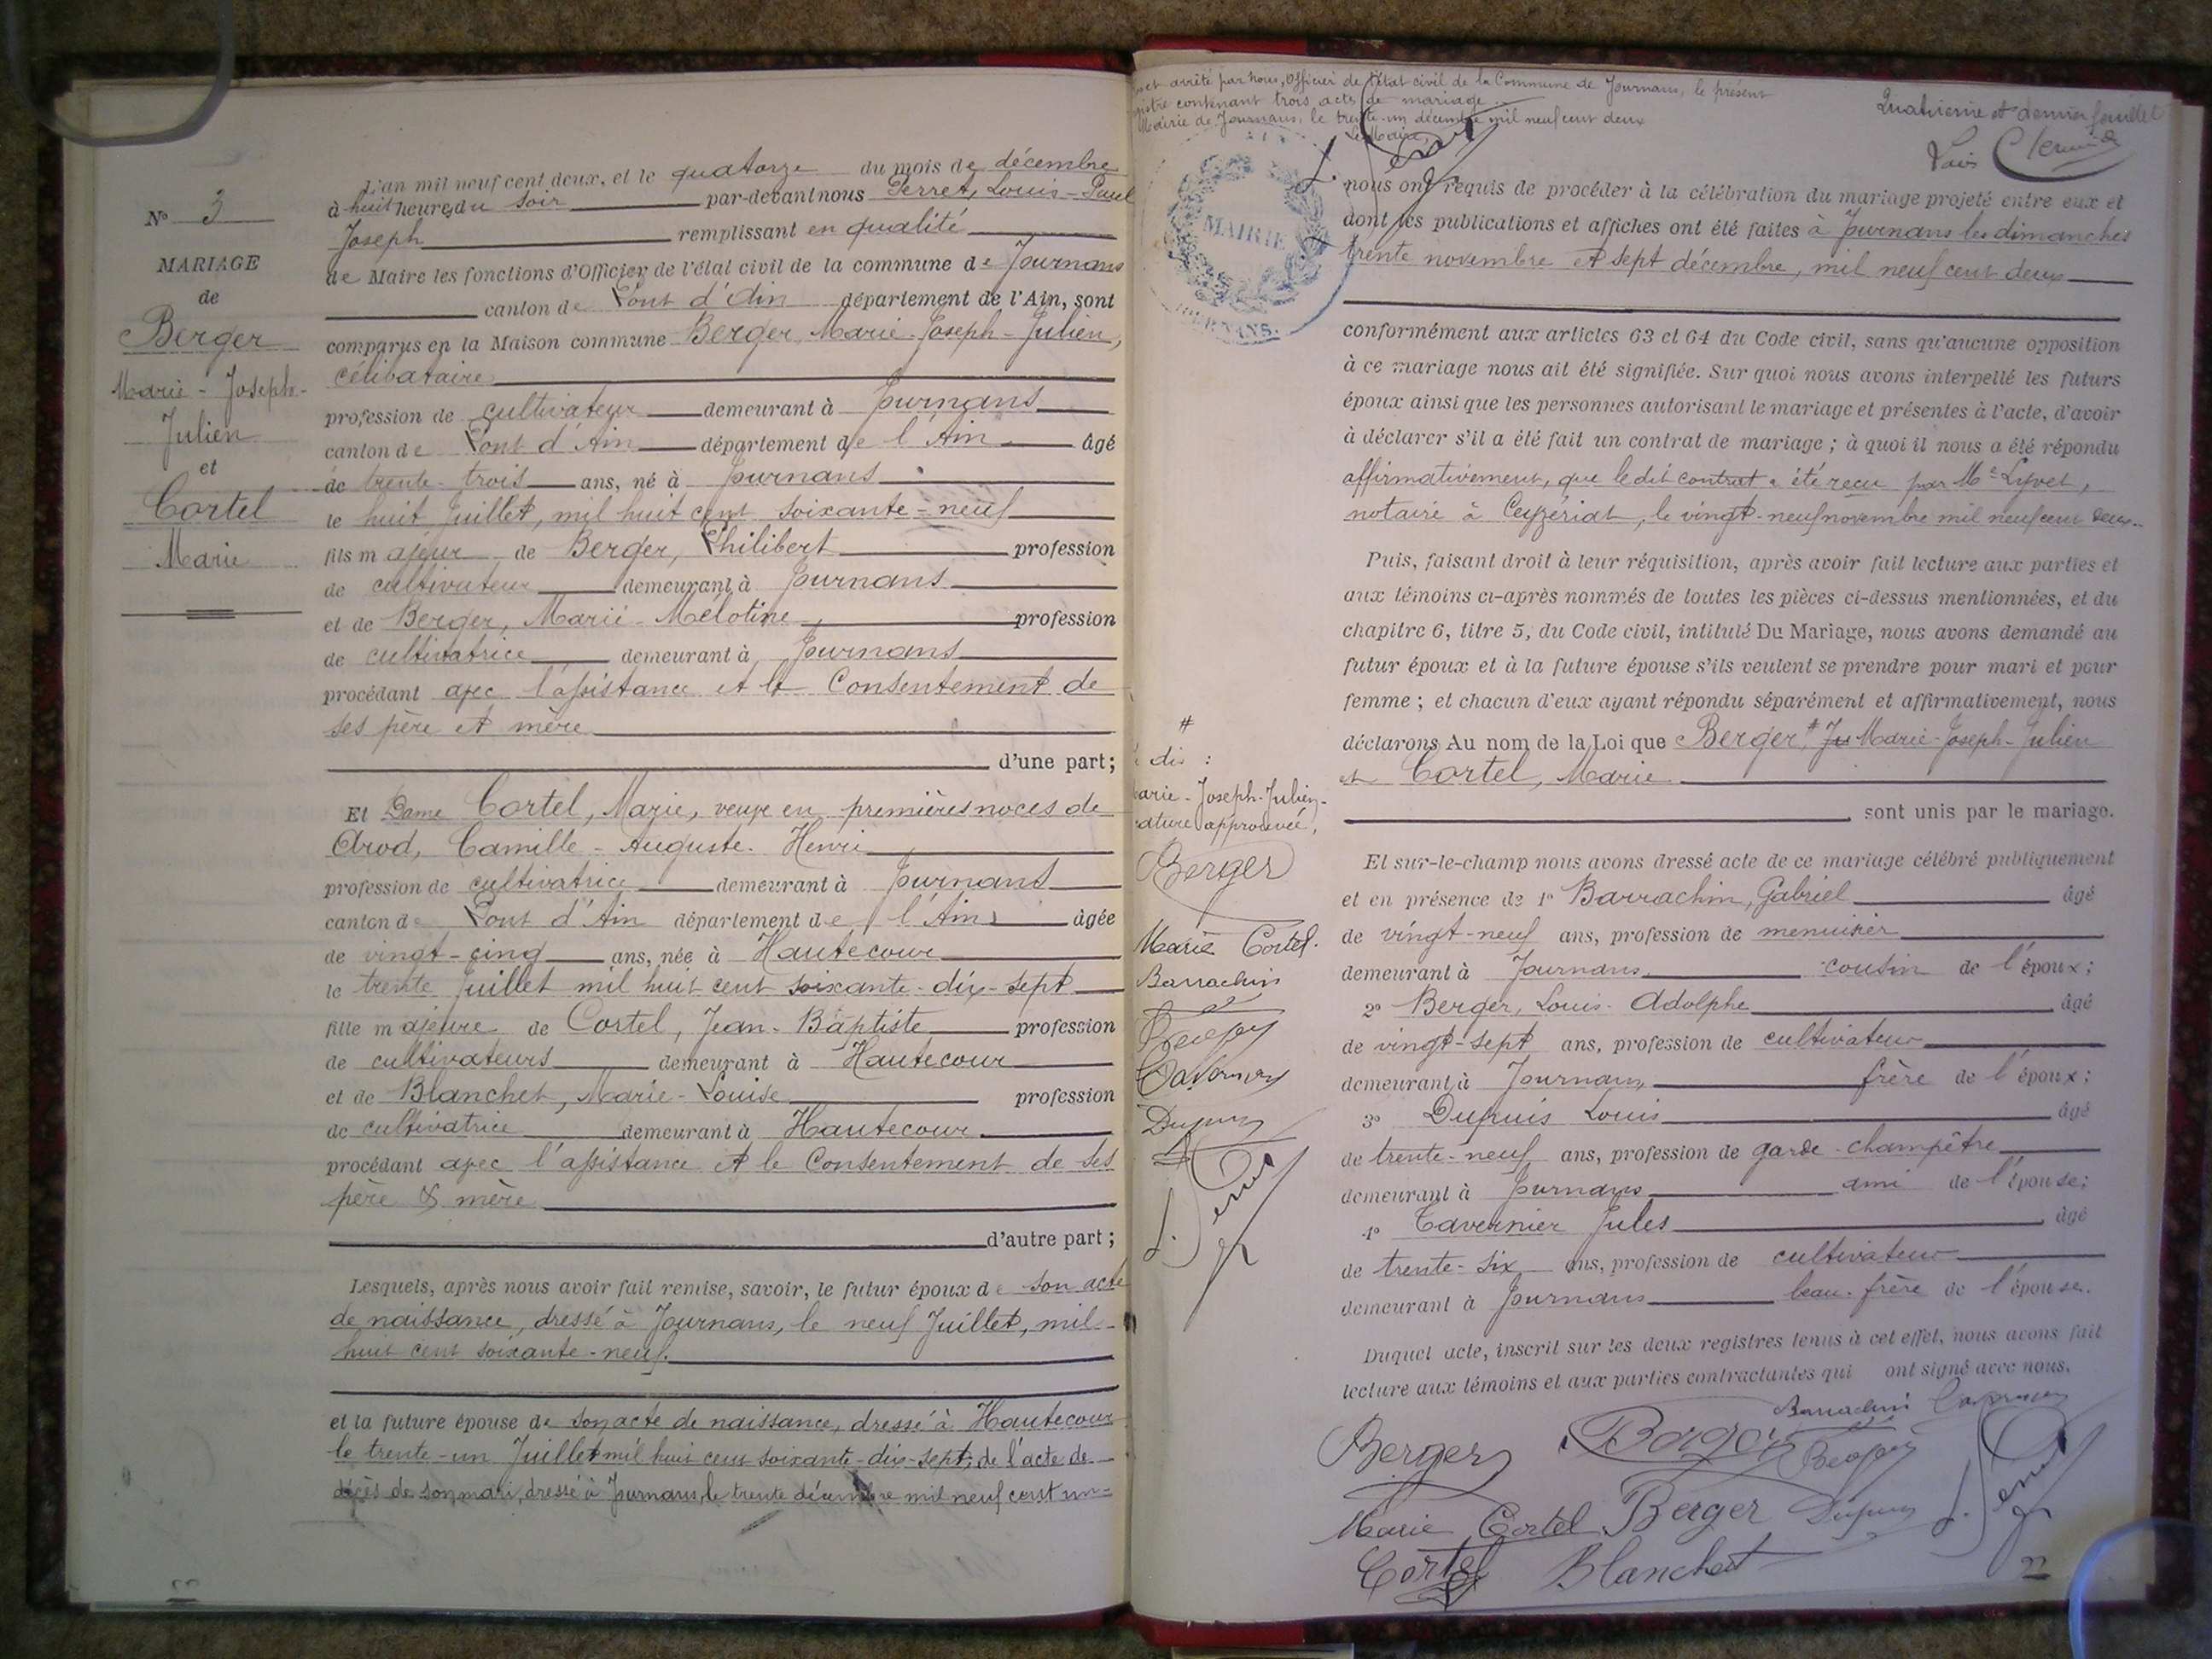 N° 3
MARIAGE
de
Berger
Marie - Joseph-
Julien
et
Cortel
Marie
L'an mil neuf cent deux, et le quatorze du mois de décembre
à huit heures du soir par-devant nous Perret, Louis-Paul
Joseph remplissant en qualité
de Maire les fonctions d'Officier de l'état civil de la commune de Journans
canton de Pont d'Ain département de l'Ain, sont
comparus en la Maison commune Berger, Marie-Joseph-Julien,
célibataire
profession de cultivateur demeurant à Journans
canton de Pont d'Ain département de l'Ain âgé
de trente-trois ans, né à Journans
le huit Juillet, mil huit cent soixante-neuf
fils majeur de Berger, Philibert profession
de cultivateur demeurant à Journans
et de Berger, Marie-Mélotine profession
de cultivatrice demeurant à Journans
procédant avec l'assistance et le Consentement de
ses père et mère
d'une part;
Et Dame Cortel, Marie, veuve en premières noces de
Arod, Camille-Auguste-Henri
profession de cultivatrice demeurant à Journans
canton de Pont d'Ain département de l'Ain âgée
de vingt-cinq ans, née à Hautecour
le trente Juillet mil huit cent soixante-dix-sept
fille majeure de Cortel, Jean-Baptiste profession
de cultivateurs demeurant à Hautecour
et de Blanchet, Marie-Louise profession
de cultivatrice demeurant à Hautecour
procédant avec l'assistance et le Consentement de ses
père & mère
d'autre part;
Lesquels, après nous avoir fait remise, savoir, le futur époux de son acte
de naissance, dressé à Journans, le neuf Juillet, mil-
huit cent soixante-neuf.
et la future épouse de son acte de naissance, dressé à Hautecour
le trente-un Juillet mil huit cent soixante-dix-sept, de l'acte de
décès de son mari, dressé à Journans, le trente décembre mil neuf cent un-
arrêté par nous, Officier de l'état civil de la Commune de Journans, le présent
contenant trois actes de mariage
Mairie de Journans, le trente-un décembre mil neuf cent deux
Le Maire,
Quatrième et dernier feuillet
MAIRIE
nous ont requis de procéder à la célébration du mariage projeté entre eux et
dont les publications et affiches ont été faites à Journans les dimanches
trente novembre et sept décembre, mil neuf cent deux
conformément aux articles 63 et 64 du Code civil, sans qu'aucune opposition
à ce mariage nous ait été signifiée. Sur quoi nous avons interpellé les futurs
époux ainsi que les personnes autorisant le mariage et présentes à l'acte, d'avoir
à déclarer s'il a été fait un contrat de mariage; à quoi il nous a été répondu
affirmativement, que le dit contrat a été reçu par Me Lyvet,
notaire à Ceyzériat, le vingt-neuf novembre mil neuf cent deux.
Puis, faisant droit à leur réquisition, après avoir fait lecture aux parties et
aux témoins ci-après nommés de toutes les pièces ci-dessus mentionnées, et du
chapitre 6, titre 5, du Code civil, intitulé Du Mariage, nous avons demandé au
futur époux et à la future épouse s'ils veulent se prendre pour mari et pour
femme; et chacun d'eux ayant répondu séparément et affirmativement, nous
déclarons Au nom de la Loi que Berger # Ju Marie-Joseph-Julien
et Cortel, Marie
sont unis par le mariage.
Et sur-le-champ nous avons dressé acte de ce mariage célébré publiquement
et en présence de 1° Barrachin, Gabriel âgé
de vingt-neuf ans, profession de menuisier
demeurant à Journans cousin de l'époux;
2° Berger, Louis-Adolphe âgé
de vingt-sept ans, profession de cultivateur
demeurant à Journans frère de l'époux;
3° Dupuis Louis âgé
de trente-neuf ans, profession de garde-champêtre
demeurant à Journans ami de l'épouse;
4° Tavernier Jules âgé
de trente-six ans, profession de cultivateur
demeurant à Journans beau-frère de l'épouse.
Duquel acte, inscrit sur les deux registres tenus à cet effet, nous avons fait
lecture aux témoins et aux parties contractantes qui ont signé avec nous.
#
Marie-Joseph-Julien-
approuvée,
Berger
Marie Cortel
Barrachin
Berger
Tavernier
Dupuis
Barrachin Tavernier
Berger Berger Berger
Marie Cortel Berger Dupuis
Cortel Blanchet